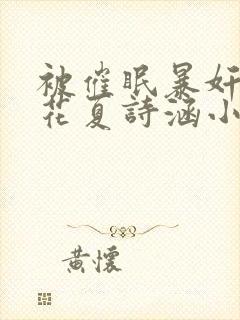 被催眠暴奸
花夏詩涵小
黃懷